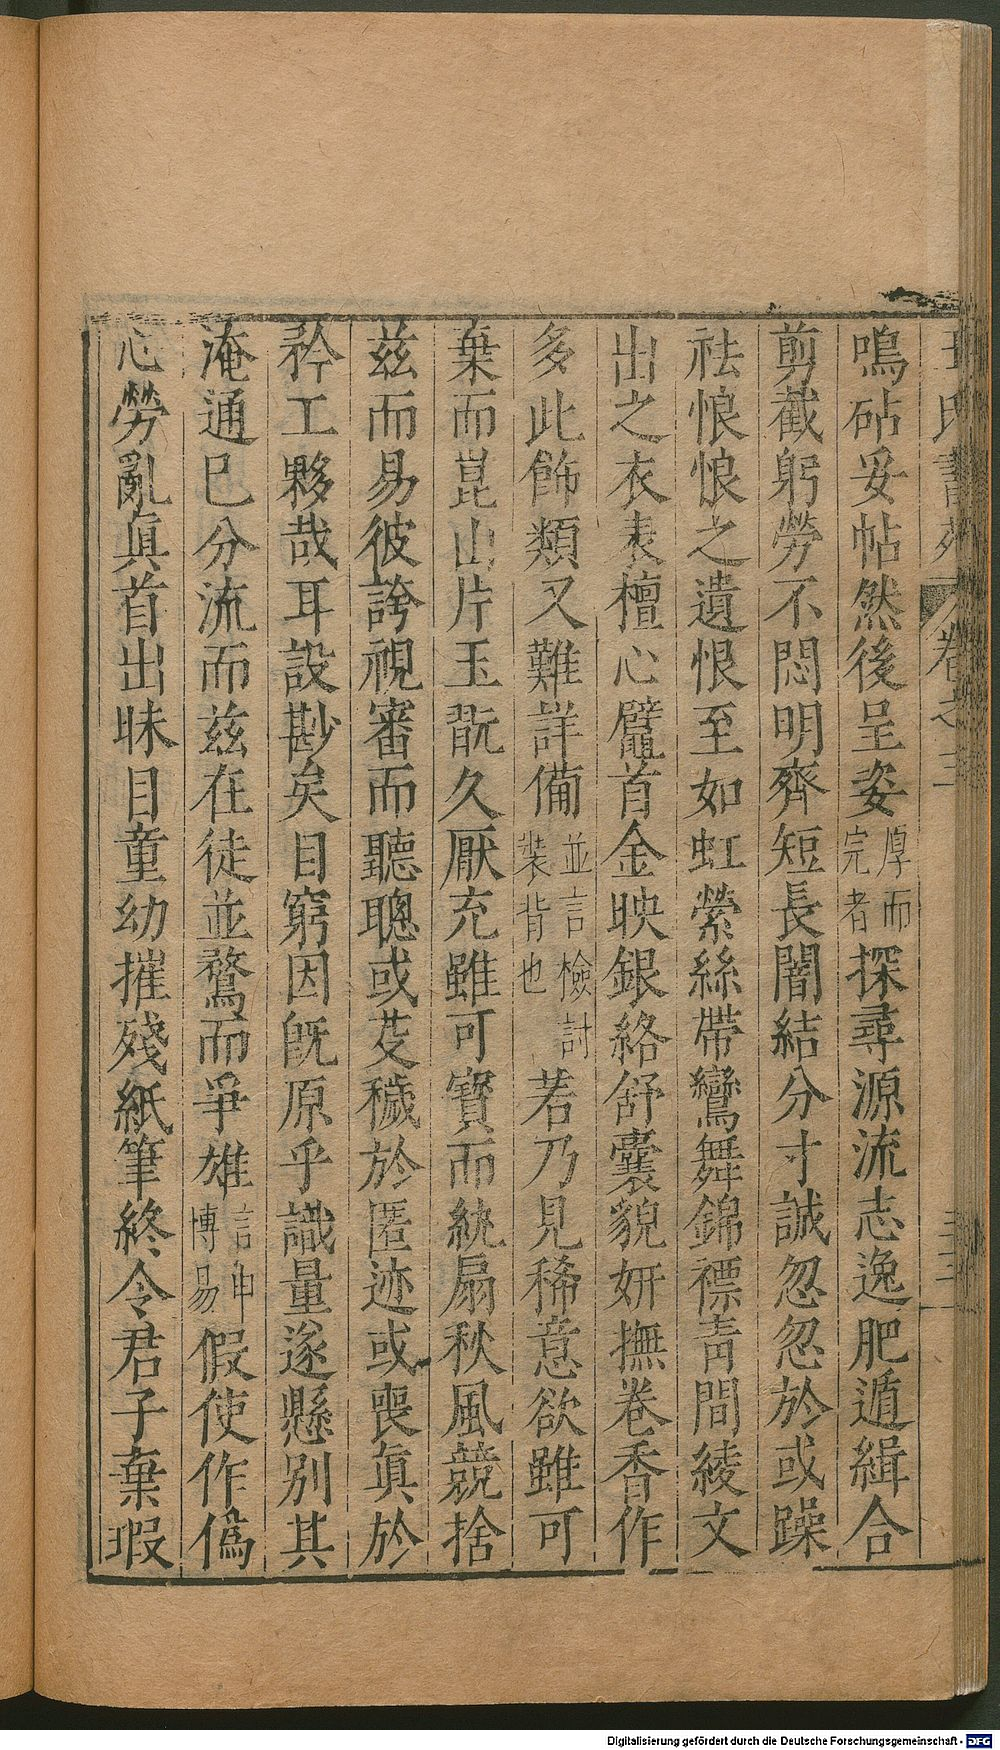 鳴砧妥帖然後呈姿厚而完者探尋源流志逸肥遁緝合
剪截躬勞不悶明齊短長闇結分寸誠忽忽於或躁
祛悢悢之遺恨至如虹縈絲帶鸞舞錦褾青間綾文
出之衣表檀心龗首金映銀絡舒囊貌妍撫卷香作
多此飾類又難詳備並言檢討裝背也若乃見稀意欲雖可
棄而崑山片玉翫久厭充雖可寶而紈扇秋風競捨
茲而易彼誇視審而聽聰或芟穢於匿迹或喪眞於
矜工夥哉耳設尠矣目窮因旣原乎識量遂懸別其
淹通已分流而茲在徒並騖而爭雄言申博易假使作僞
心勞亂眞首出昧目童幼摧殘紙筆終令君子棄瑕
卷之三
Digitalisierung gefördert durch die Deutsche Forschungsgemeinschaft - DFG